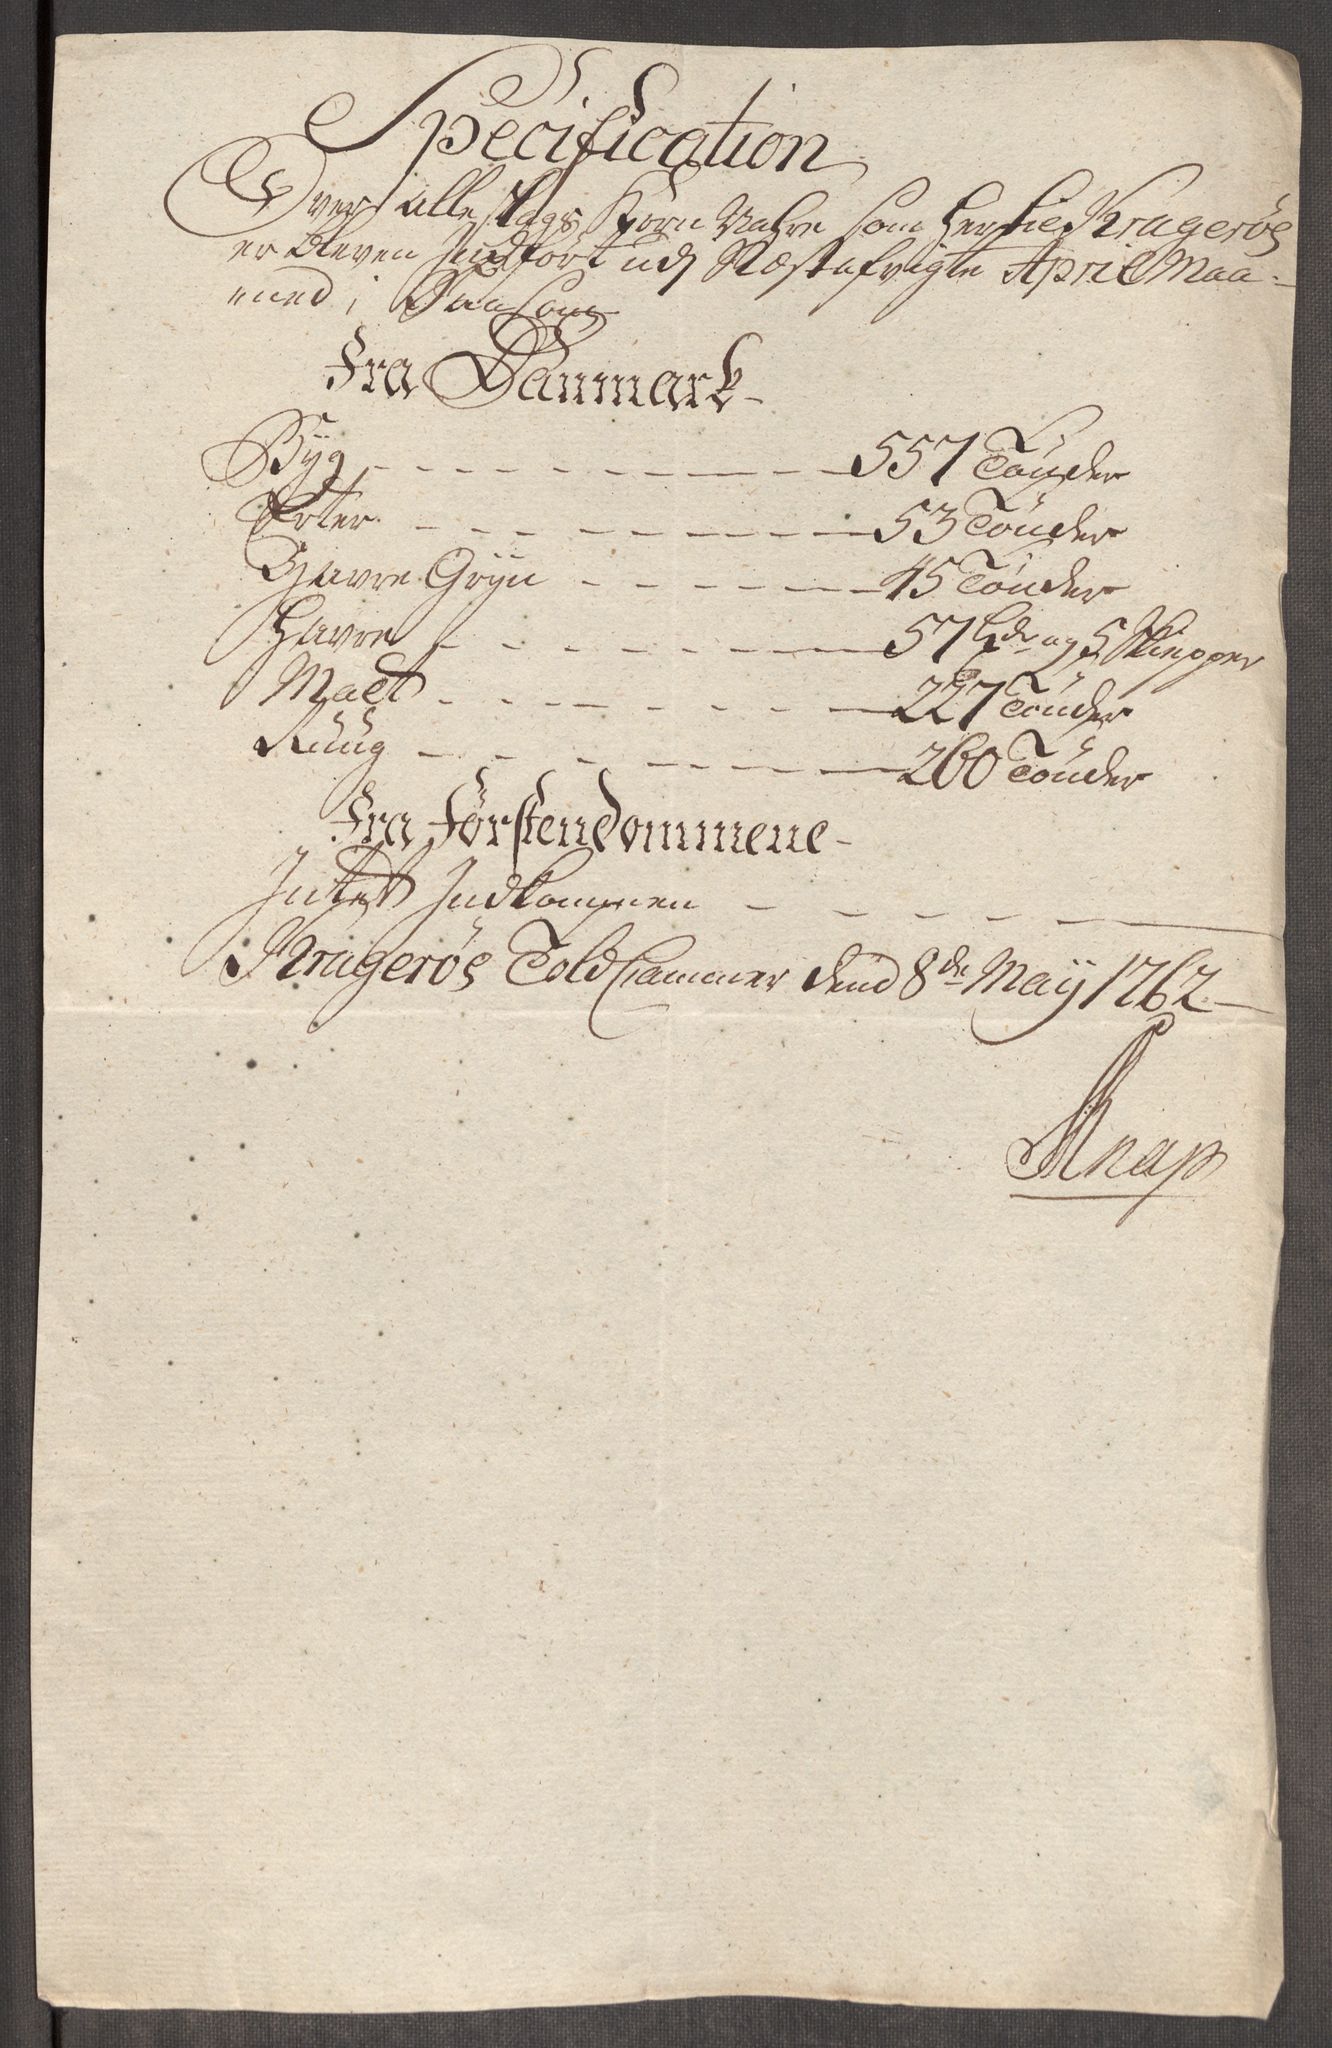 Specification
Over alle slags Korn Vahre som her tie Kragerøe
er bleven Indført udj Næstafvigte April Maa-
ned, Saasom
Fra Danmark-
Byg - - - - - - - 557 Tønder
Erter. - - - - - - - 53 Tønder
Havre Gryn - - - - - 45 Tønder
Havre - - - - - - - 57 Tdr og 5 Skiepper
Malt - - - - - - - 227 Tønder
Ruug - - - - - - - 260 Tønder
Fra Førstendommene-
Intet Indkommen - - - - -
Kragerøe Told Cammer dend 8de May 1762-
Knap